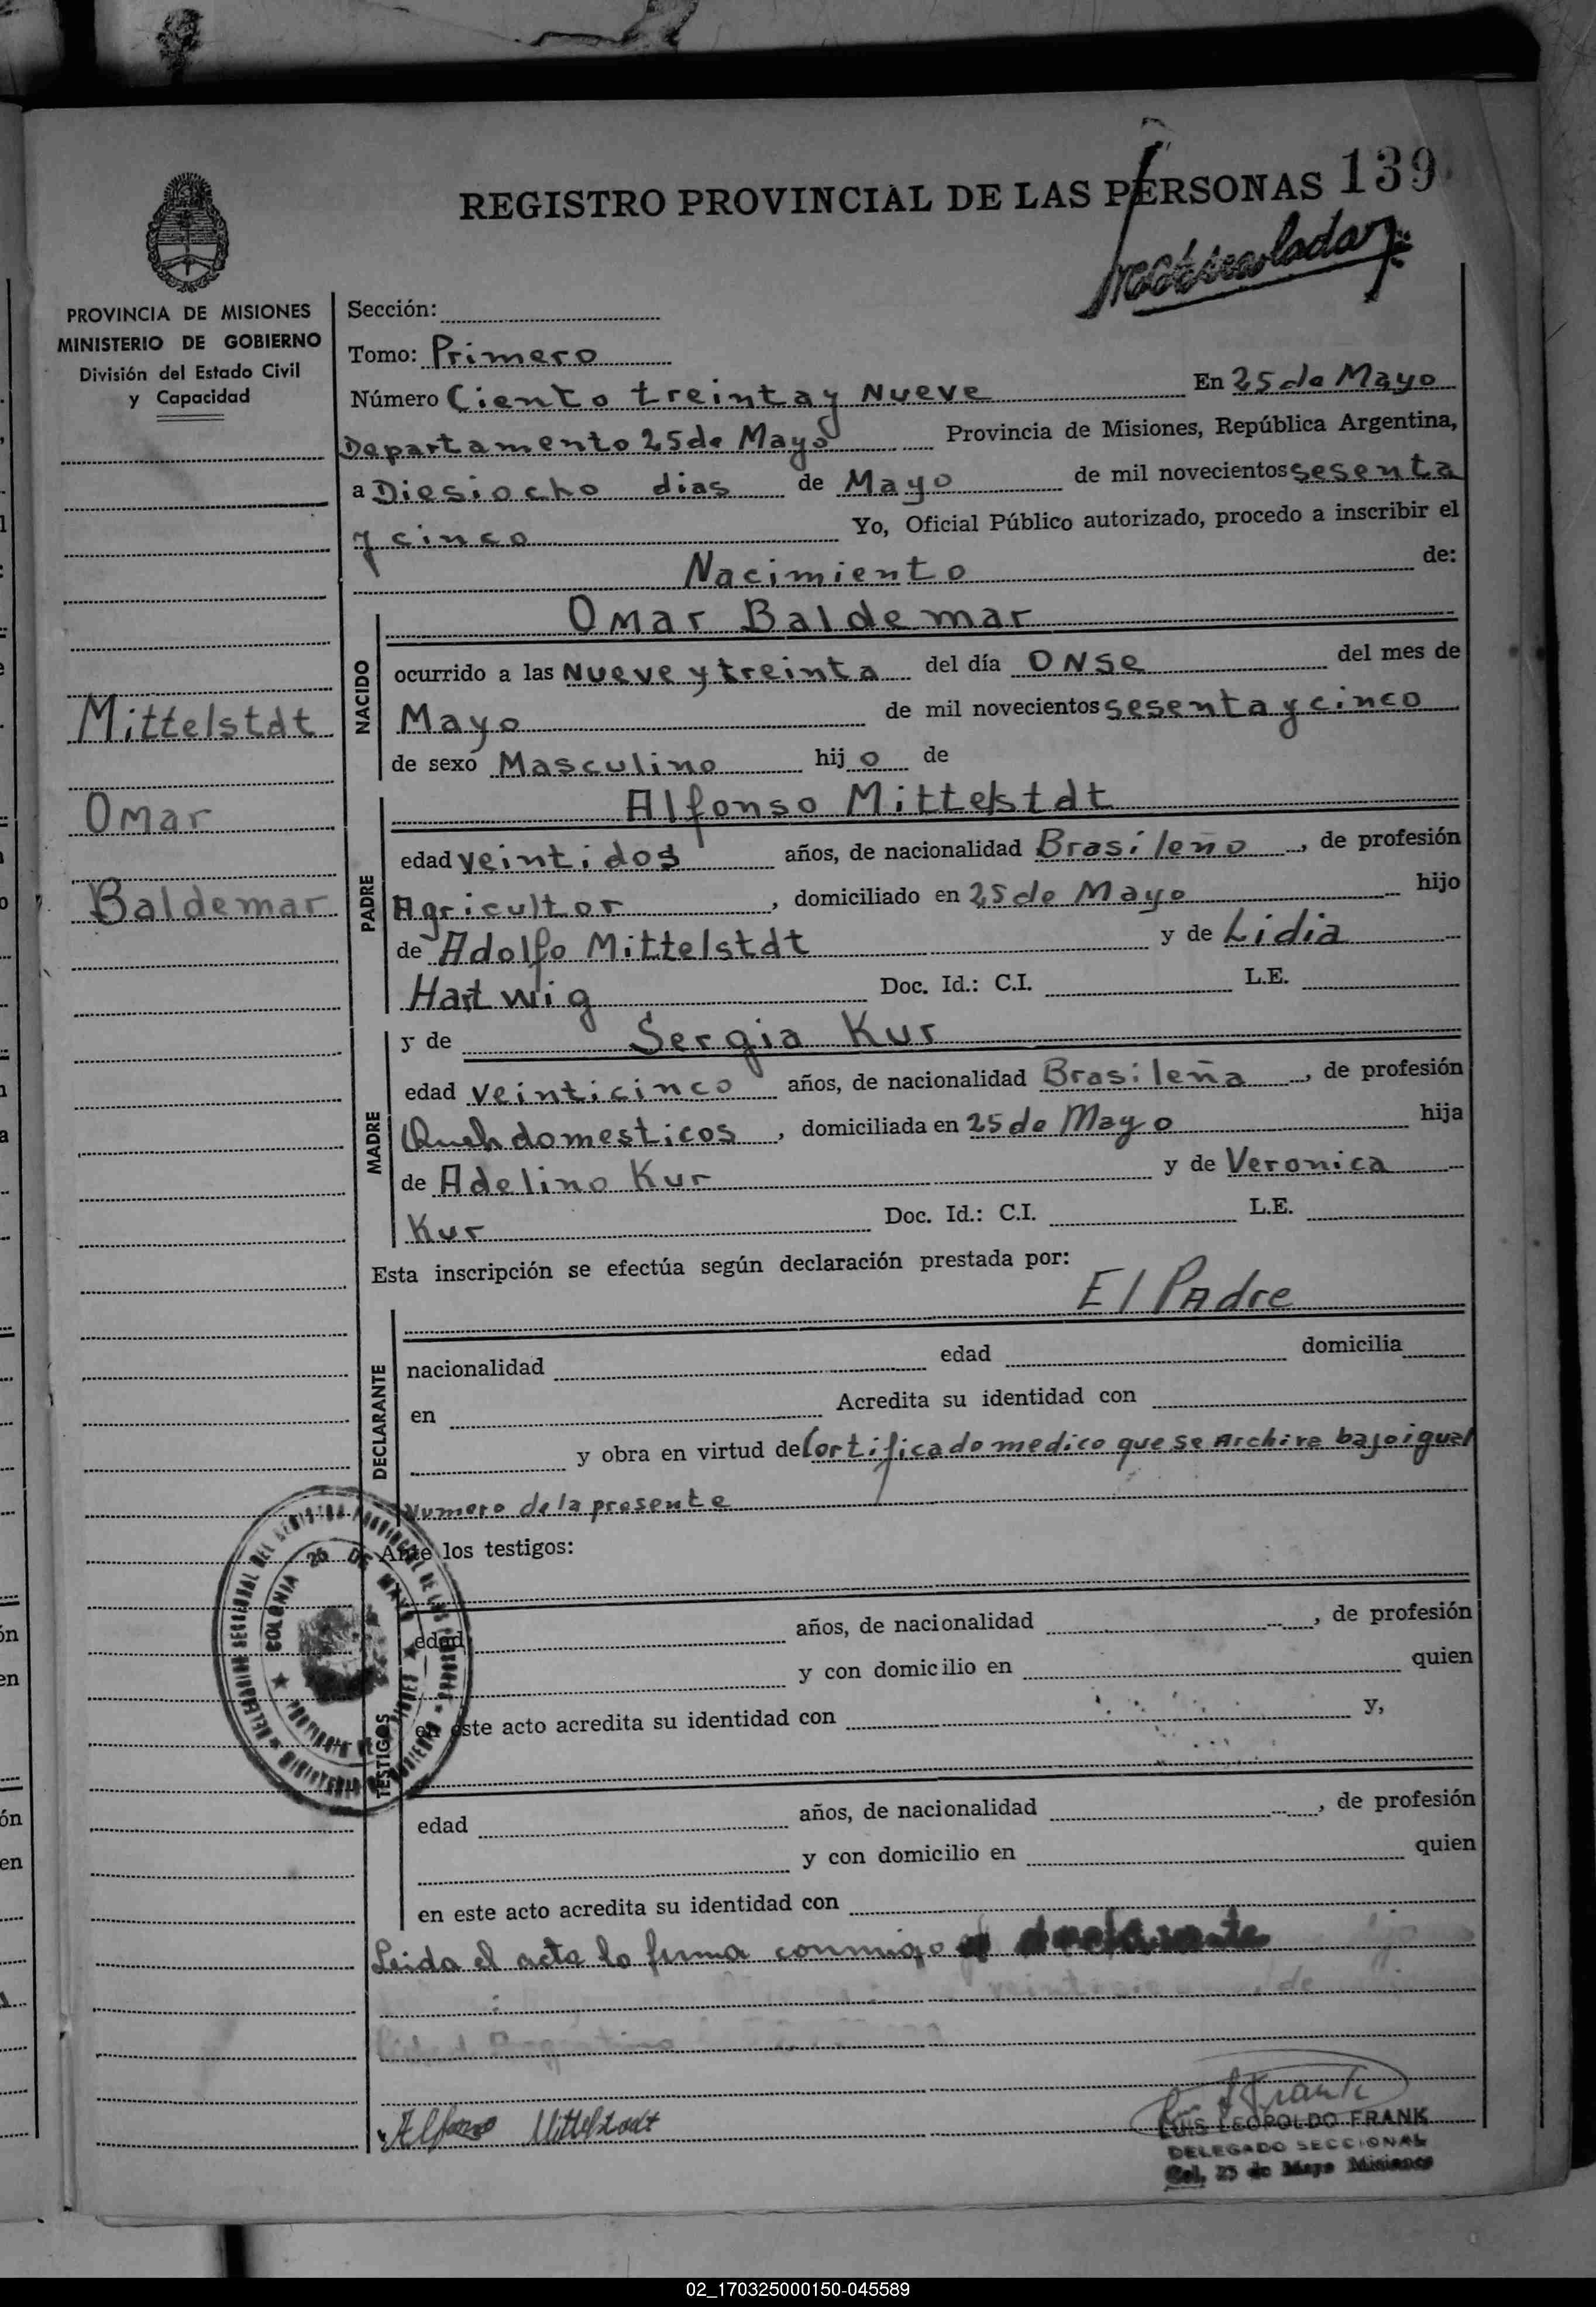 REGISTRO PROVINCIAL DE LAS PERSONAS 139
PROVINCIA DE MISIONES
MINISTERIO DE GOBIERNO
División del Estado Civil
y Capacidad
Mittelstdt
Omar
Baldemar
Sección:
Tomo: Primero
Número Ciento treinta y Nueve En 25 de Mayo
Departamento 25 de Mayo Provincia de Misiones, República Argentina,
a Diesiocho dias de Mayo de mil novecientos sesenta
y cinco Yo, Oficial Público autorizado, procedo a inscribir el
Nacimiento de:
NACIDO
Omar Baldemar
ocurrido a las Nueve y treinta del día ONSe del mes de
Mayo de mil novecientos sesenta y cinco
de sexo Masculino hijo de
PADRE
Alfonso Mittelstdt
edad veintidos años, de nacionalidad Brasileño, de profesión
Agricultor, domiciliado en 25 de Mayo hijo
de Adolfo Mittelstdt y de Lidia
Hartwig Doc. Id.: C.I. L.E.
MADRE
y de Sergia Kur
edad veinticinco años, de nacionalidad Brasileña, de profesión
Queh domesticos, domiciliada en 25 de Mayo hija
de Adelino Kur y de Veronica
Kur Doc. Id.: C.I. L.E.
Esta inscripción se efectúa según declaración prestada por:
El Padre
DECLARANTE
nacionalidad edad domicilia
en Acredita su identidad con
y obra en virtud de Certificado medico que se Archiva bajo igual
Numero de la presente
Ante los testigos:
TESTIGOS
edad años, de nacionalidad , de profesión
y con domicilio en quien
en este acto acredita su identidad con y,
edad años, de nacionalidad , de profesión
y con domicilio en quien
en este acto acredita su identidad con
COLONIA 25 DE MAYO
Leida el acta la firma conmigo el declarante
Alfonso Mittelstadt
L Frank
LUIS LEOPOLDO FRANK
DELEGADO SECCIONAL
Col. 25 de Mayo Misiones
02_170325000150-045589